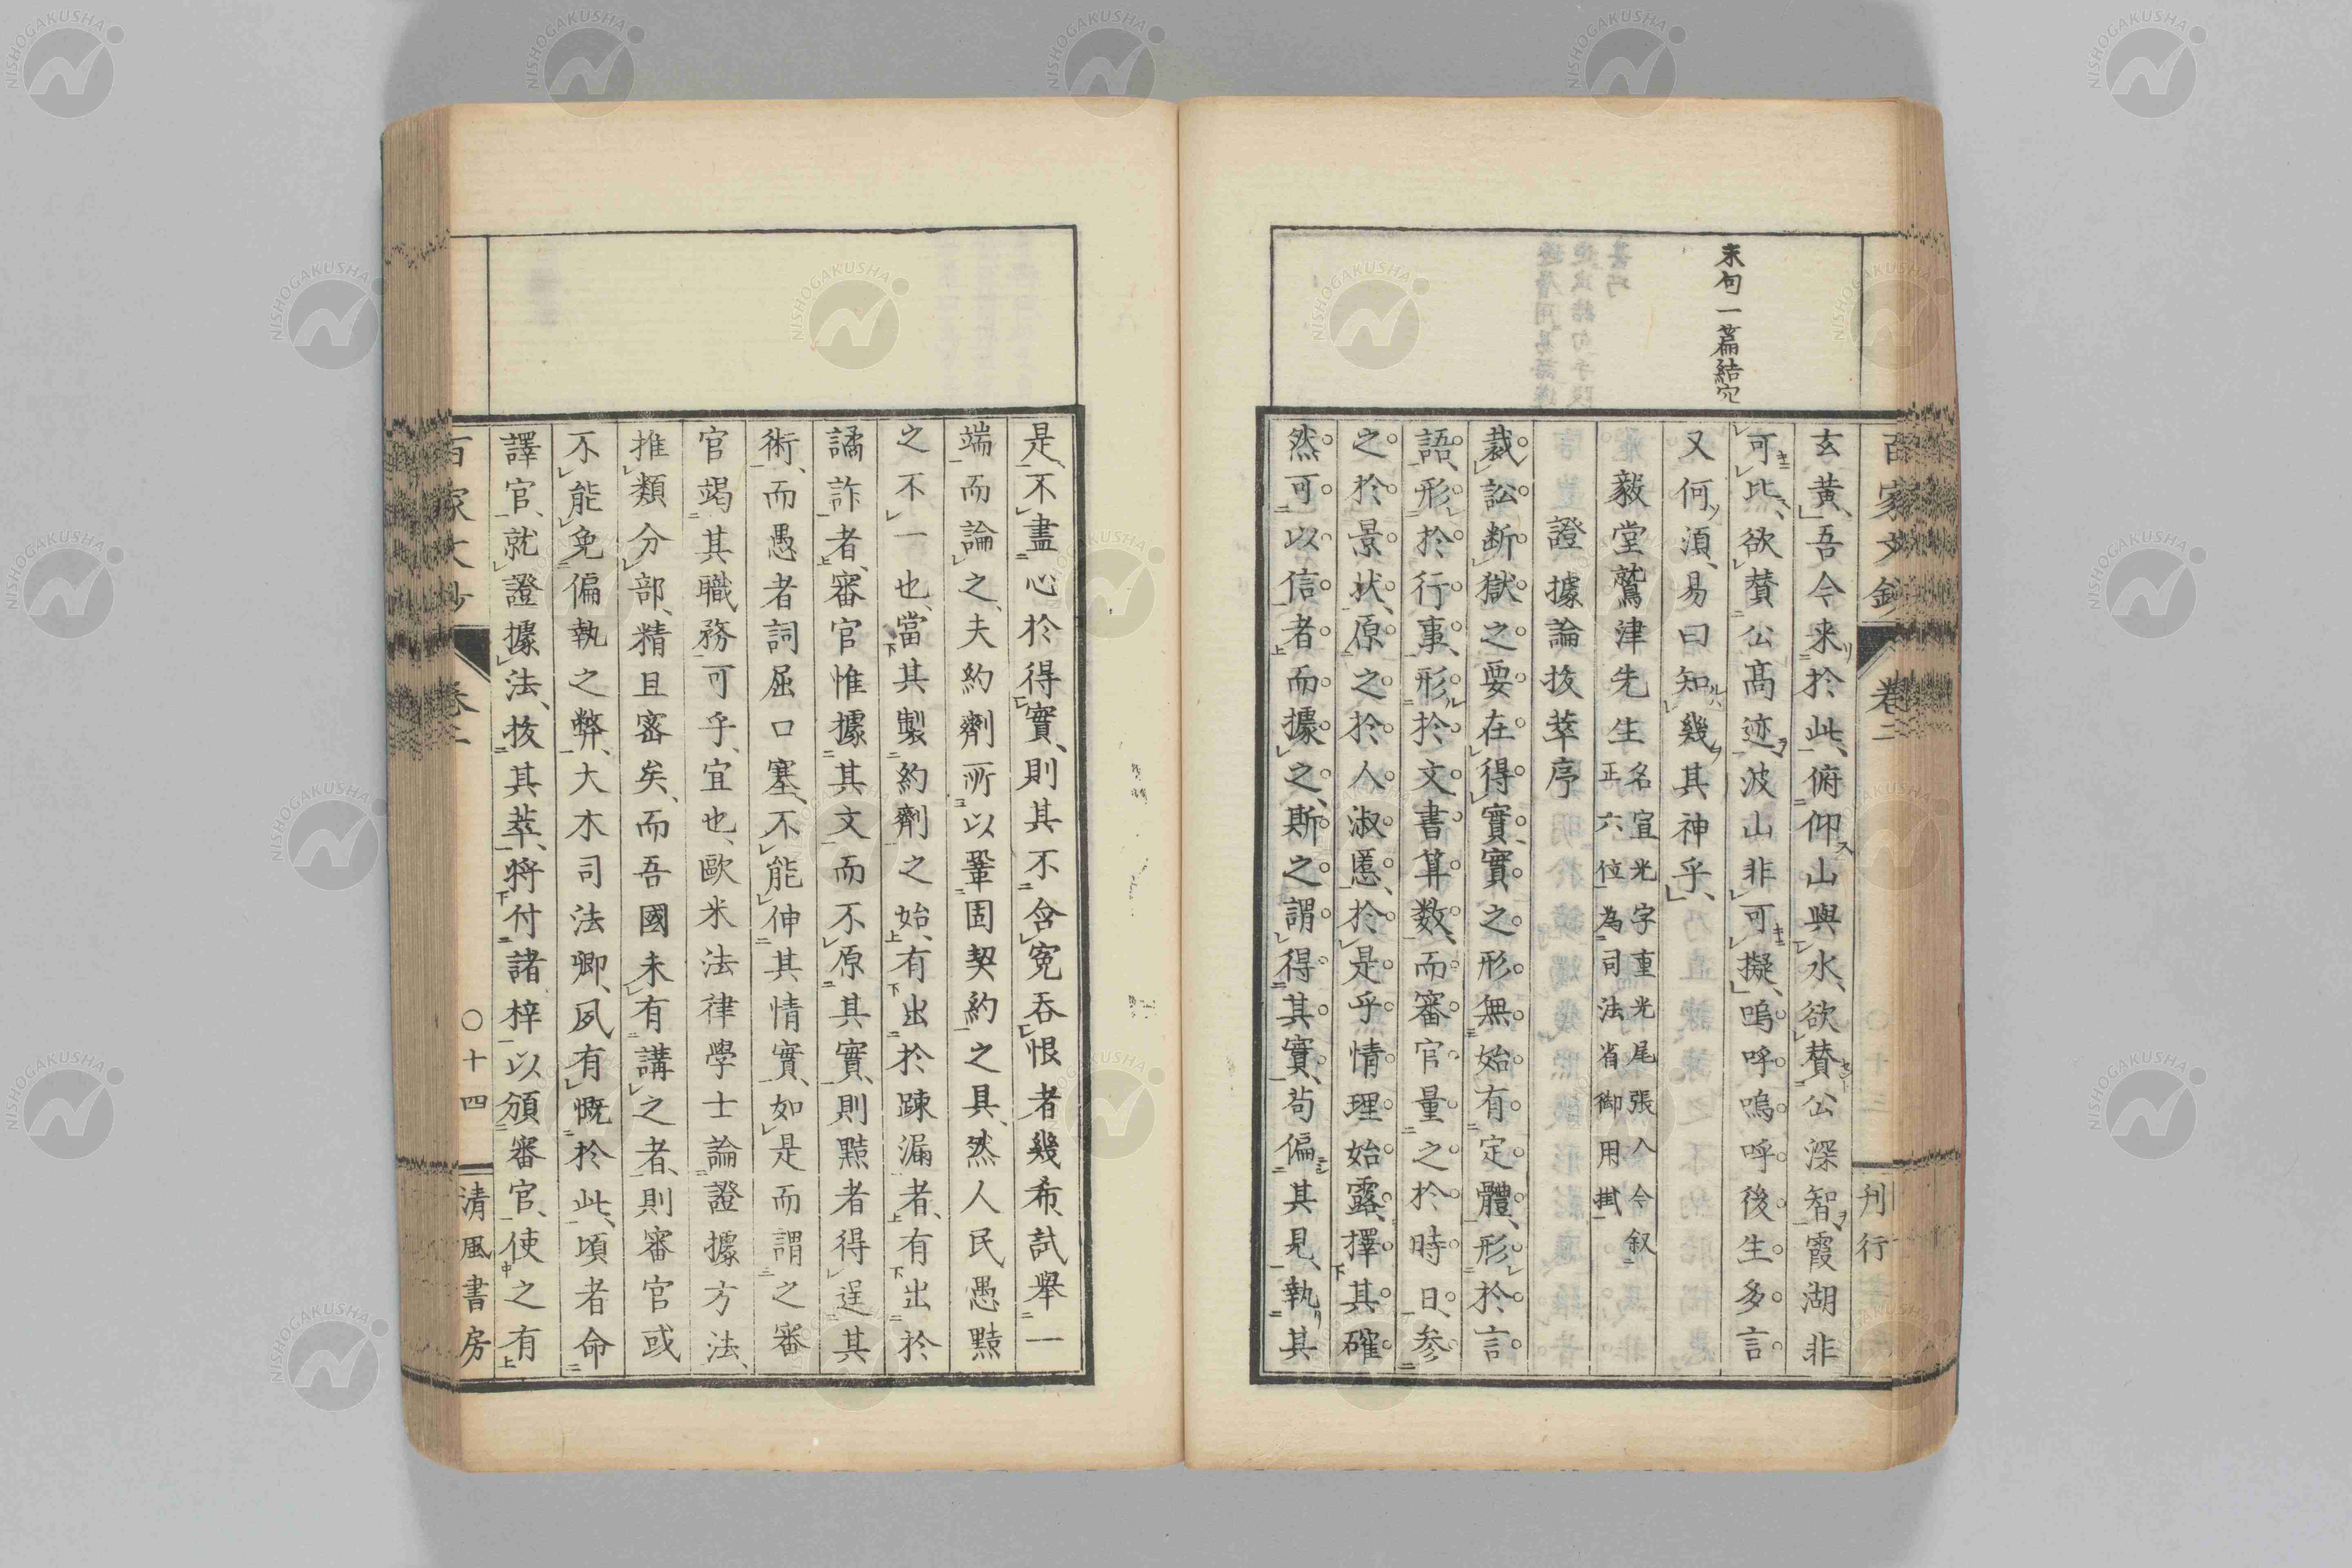 百家文鈔 卷二 刊行
末句一篇結穴
玄黃、吾今來於此、俯仰山與水、欲賛公深智、霞湖非
可比、欲賛公髙迹、波山非可擬、嗚呼嗚呼後生多言
又何須、易曰知幾其神乎、
毅堂鷲津先生 名宣光字重光尾張人今叙正六位為司法省御用掛
證據論抜萃序
裁訟断獄之要在得實、實之形無始有定體、形於言
語、形於行事、形於文書算数、而審官量之於時日、参
之於景状、原之於人淑慝、於是乎情理始露、擇其確
然可以信者而據之、斯之謂得其實、苟偏其見、執其
是、不盡心於得實、則其不含寃吞恨者幾希、試舉一
端而論之、夫約劑所以鞏固契約之具、然人民愚黠
之不一也、當其製約劑之始、有出於疎漏者、有出於
譎詐者、審官惟據其文而不原其實、則黠者得逞其
術、而愚者詞屈口塞、不能伸其情實、如是而謂之審
官竭其職務可乎、宜也、歐米法律學士論證據方法、
推類分部、精且密矣、而吾國未有講之者、則審官或
不能免偏執之弊、大木司法卿、夙有慨於此、頃者命
譯官、就證據法、抜其萃、將付諸梓以頒審官、使之有
百家文鈔 卷二 〇十四 清風書房